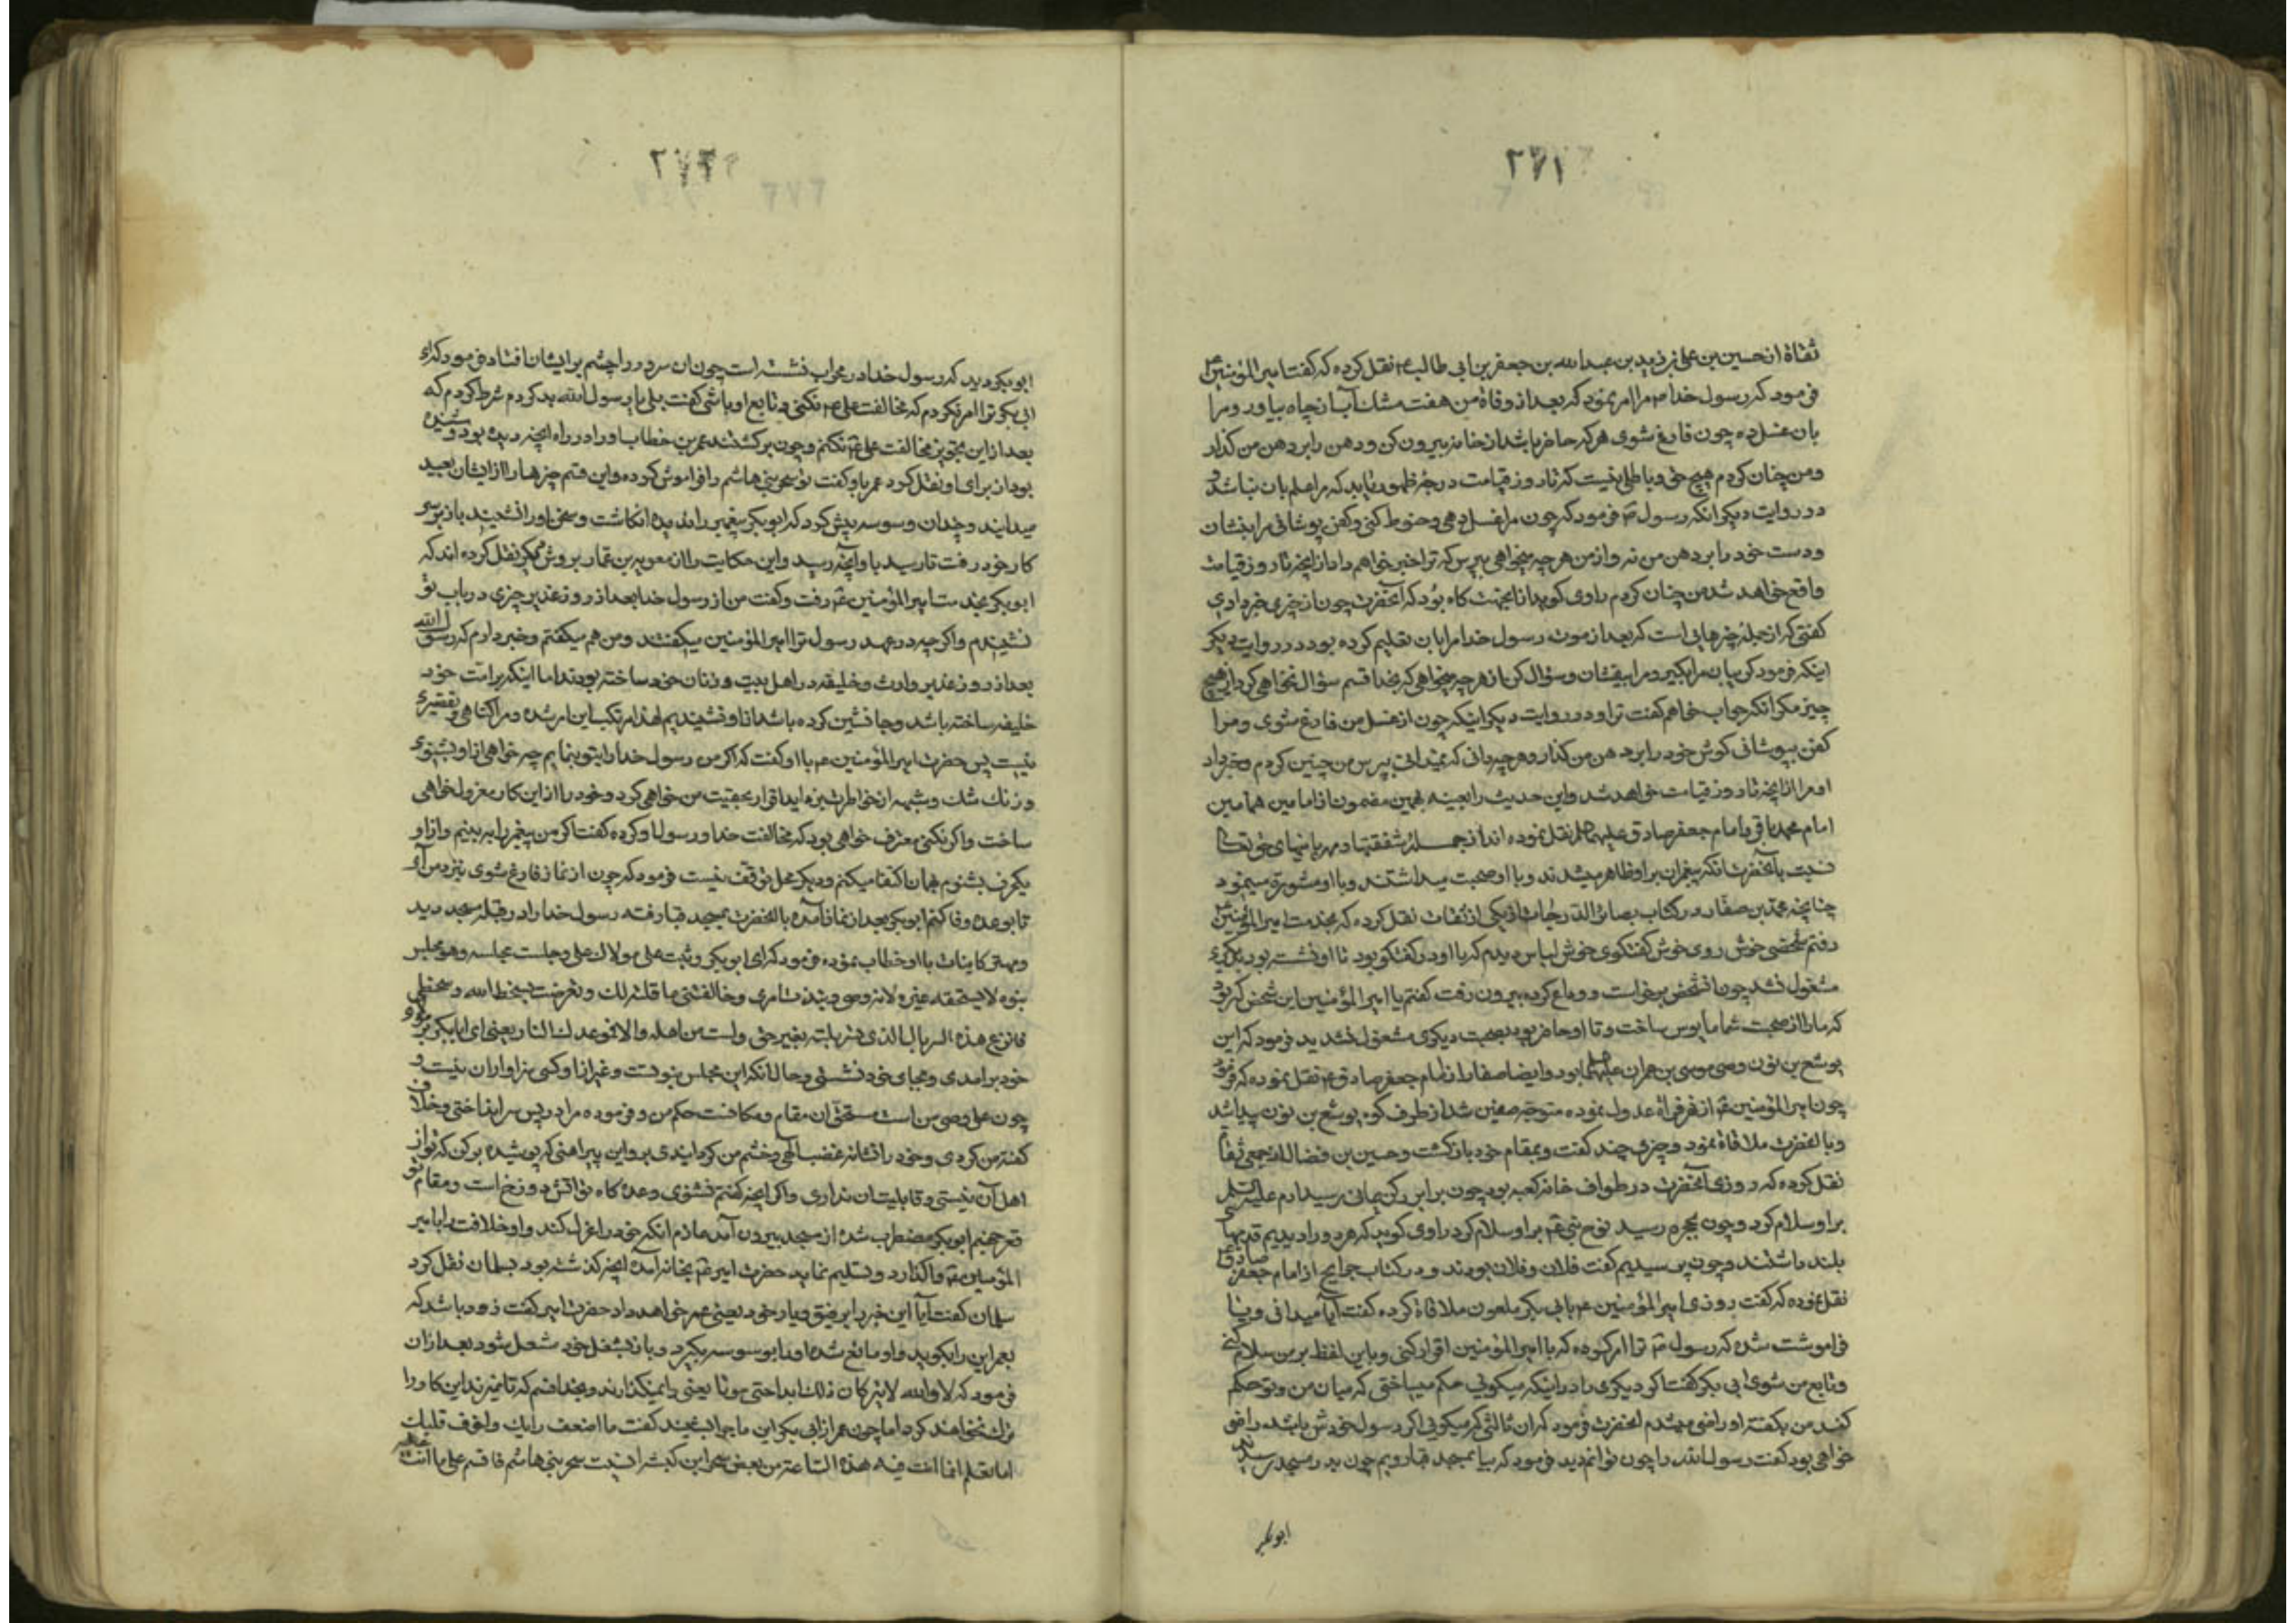 ۲۷۱
ثقاة از حسین بن علی بن زید بن عبدالله بن جعفر بن ابی طالب ع نقل کرده که گفت امیرالمؤمنین ع
فرمود که رسول خدا م مرا امر نمود که بعد از وفاة من هفت مشك آب از چاه بیاور و مرا
بان غسل ده چون فارغ شوی هر که حاضر باشد از خانه بیرون کن و دهن را بر دهن من گذار
و من چنان کردم هیچ حق و باطلی نیست که تا روز قیامت در حیز ظهور نیاید که مرا علم بان نباشد و
در روایت دیگر انکه رسول م فرمود که چون مرا غسل دهی و حنوط کنی و کفن پوشانی مرا بنشان
و دست خود را بر دهن من نه و از من هر چه میخواهی بپرس که ترا خبر خواهم داد از انچه تا روز قیامت
واقع خواهد شد من چنان کردم راوی گوید از انجهت گاه بود که آنحضرت چون از چیزی خبر دادی
گفتی که از جمله چیزهایی است که بعد از موت رسول خدا مرا بان تعلیم کرده بود و در روایت دیگر
اینکه فرمود گریبان مرا بگیر و مرا بنشان و سؤال کن از هر چه میخواهی که بخدا قسم سؤال نخواهی کرد از هیچ
چیز مگر انکه جواب خواهم گفت ترا و در روایت دیگر اینکه چون از غسل من فارغ شوی و مرا
کفن بپوشانی گوش خود را بر دهن من گذار و هر چه دانی که نمیدانی بپرس من چنین کردم و خبر داد
او مرا از انچه تا روز قیامت خواهد شد و این حدیث را بعینه بهمین مضمون از امامین همامین
امام محمد باقر و امام جعفر صادق علیهما نقل نموده اند از جمله شفقتها و مهربانیهای حق تعالی
نسبت بآنحضرت انکه پیغمبران بر او ظاهر میشدند و با او صحبت میداشتند و با او مشورة مینمود
چنانچه محمد بن صفار در کتاب بصائر الدرجات از یکی از ثقات نقل کرده که بخدمت امیرالمؤمنین ع
رفتم شخصی خوش روی خوش گفتگوی خوش لباس دیدم که با او در گفتگو بود تا او نشسته بود بدیگری
مشغول نشد چون انشخص برخاست و وداع کرده بیرون رفت گفتم یا امیرالمؤمنین این شخص که بود
که ما را از صحبت شما مأیوس ساخت و تا او حاضر بود بصحبت دیگری مشغول نشدید فرمود که این
یوشع بن نون وصی موسی بن عمران علیهما بود و ایضا صفار از امام جعفر صادق ع نقل نموده که فرمود
چون امیرالمؤمنین ع از نهروان عدول نموده متوجه صفین شد از طرف کوه یوشع بن نون پیدا شد
و با انحضرت ملاقاة نمود و چیزی چند گفت و بمقام خود بازگشت و حسین بن فضال از جمعی ثقات
نقل کرده که روزی آنحضرت در طواف خانه کعبه بود چون برابر رکن یمانی رسید ادم علیه السلم
بر او سلام کرد و چون بحجره رسید نوح نبی ع بر او سلام کرد راوی گوید که هر دو را دیدیم قدیها
بلند داشتند و چون پرسیدیم گفت فلان و فلان بودند و در کتاب جرایح از امام جعفر صادق ع
نقل نموده که گفت روزی امیرالمؤمنین ع بابی بکر ملعون ملاقاة کرده گفت آیا میدانی و یا
فراموشت شده که رسول م ترا امر کرده که با امیرالمؤمنین اقرار کنی و باین لفظ بر من سلام کنی
و تابع من شوی ابی بکر گفت اگر دیگری را در اینکه میگویی حکم میساختی که میان من و تو حکم
کند من بگفته او راضی میشدم انحضرت فرمود که ان ثالثی که میگویی اگر رسول خود ش باشد راضی
خواهی بود گفت رسول الله را چون توانم دید فرمود که بیا بمسجد قبا رویم چون بدر مسجد رسیدند
ابوبکر
۲۷۲
ابوبکر دید که رسول خدا در محراب نشسته است چون ان سرور را چشم بر ایشان افتاد فرمود که ای
ابی بکر ترا امر نکردم که مخالفت علی ع نکنی و تابع او باشی گفت بلی یا رسول الله بد کردم شرط کردم که
بعد از این تجویز مخالفت علی ع نکنم و چون برگشتند عمر بن خطاب او را در راه انچه دیده بود و شنیده
بود از برای او نقل کرد عمر باو گفت تو سحر بنی هاشم را فراموش کرده و این قسم چیزها را از ایشان بعید
میدانید و چندان وسوسه پیش کرد که ابوبکر پیغمبر را ندیده انگاشت و سخن او را نشنیده باز بر سر
کار خود رفت تا رسید باو آنچه رسید و این حکایت را از معویه بن عمار بروش دیگر نقل کرده اند که
ابوبکر بخدمت امیرالمؤمنین ع رفت و گفت من از رسول خدا بعد از روز غدیر چیزی در باب تو
نشنیدم و اگر چه در عهد رسول ترا امیرالمؤمنین میگفتند و من هم میگفتم و خبر دارم که رسول الله
بعد از روز غدیر وارث و خلیفه در اهل بیت و زنان خود ساخته بودند اما اینکه بر امت خود
خلیفه ساخته باشد و جانشین کرده باشد از او نشنیدیم لهذا مرتکب این امر شده و مرا گناهی و تقصیری
نیست پس حضرت امیرالمؤمنین ع با او گفت که اگر من رسول خدا را بتو بنمایم چه خواهی از او بشنوی
و زنك شك و شبهه از خاطرت بزداید اقرار بحقیت من خواهی کرد و خود را از این کار معزول خواهی
ساخت و اگر نکنی معترف خواهی بود که مخالفت خدا و رسول او کرده گفت اگر من پیغمبر را ببینم و از او
یکحرف بشنوم بهمان اکتفا میکنم و دیگر محل توقف نیست فرمود که چون از نماز فارغ شوی بنزد من آی
تا بوعده وفا کنم ابوبکر بعد از نماز آمده با انحضرت بمسجد قبا رفته رسول خدا را در قبله مسجد دید
و مهتر کاینات با او خطاب نموده فرمود که ای ابوبکر وثبت علی مولاك علی و جلست مجلسه و هو مجلس
نبوة لا یستحقه غیره لانه وصی و نبذت امری و خالفتنی ما قلته لك و تعرضت بسخط الله و سخطی
فانزع هذه السربال الذی تسربلته بغیر حق و لست من اهله و الا فموعدك النار یعنی ای ابابکر بر
خود برامدی و بجای خود نشستی و حال انکه این مجلس نبوتست و غیر از او کسی سزاوار ان نیست و
چون علی وصی من است مستحق آن مقام و مکانت حکم من و فرموده مرا در پس سر انداختی و خلاف
گفته من کردی و خود را نشانه غضب الهی و خشم من گردانیدی برو این پیراهنی که پوشیده برکن که تو از
اهل آن نیستی و قابلیت ان نداری و اگر انچه گفتم نشنوی وعده گاه تو اتش دوزخ است و مقام تو
قعر جهنم ابوبکر مضطرب شده از مسجد بیرون آمد عازم انکه خود را عزل کند و او خلافت را بامیر
المؤمنین ع واگذارد و تسلیم نماید حضرت امیر ع بخانه آمده انچه گذشته بود بسلمان نقل کرد
سلمان گفت آیا این خبر را برفیق و یار خود یعنی عمر خواهد داد حضرت امیر گفت زود باشد که
بعمر این را بگوید و او مانع شده او را بوسوسه بگیرد و باز بشغل خود مشغول شود بعد از ان
فرمود که لا والله لا یترکان ذلك ابدا حتی یموتا یعنی وا نمیگذارند و بخدا قسم که تا نمیرند این کار را
ترك نخواهند کرد اما چون عمر از ابی بکر این ماجرا بشنید گفت ما اضعف رایك و اخوف قلبك
اما تعلم انما انت فیه هذه الساعة من بعض سحر ابن ابی کبشة انسیت سحر بنی هاشم فاقم علی ما انت علیه